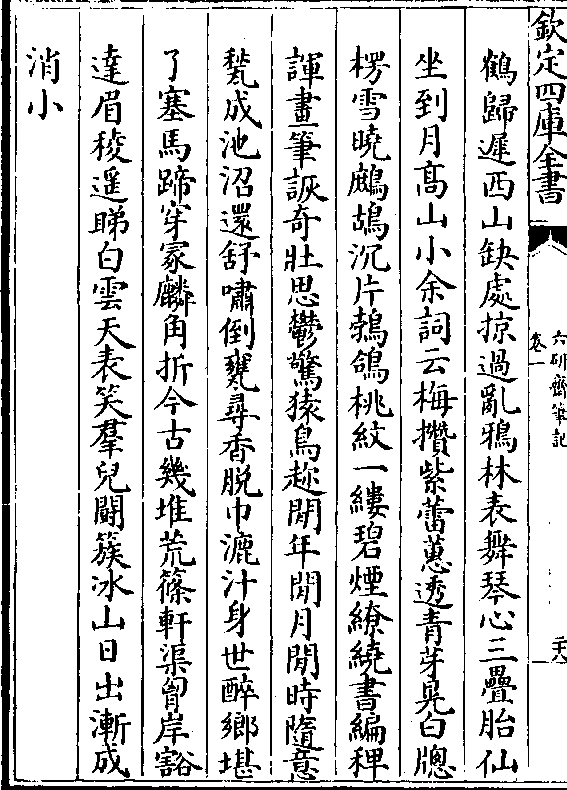 欽定四庫全書
六研齋筆記
卷一
鶴歸遲西山缺處掠過亂鴉林表舞琴心三疊胎仙
坐到月髙山小余詞云梅攢紫蕾蕙透青芽晃白牕
楞雪曉鷓鴣沉片鵓鴿桃紋一縷碧煙繚繞書編稗
諢畫筆詼奇壯思鬱驚猿鳥趂閒年閒月閒時隨意
甃成池沼還舒嘯倒甕尋香脱巾漉汁身世醉鄉堪
了塞馬蹄穿冢麟角折今古幾堆荒篠軒渠胷岸豁
達眉稜遥睇白雲天表笑羣兒鬭簇氷山日出漸成
消小